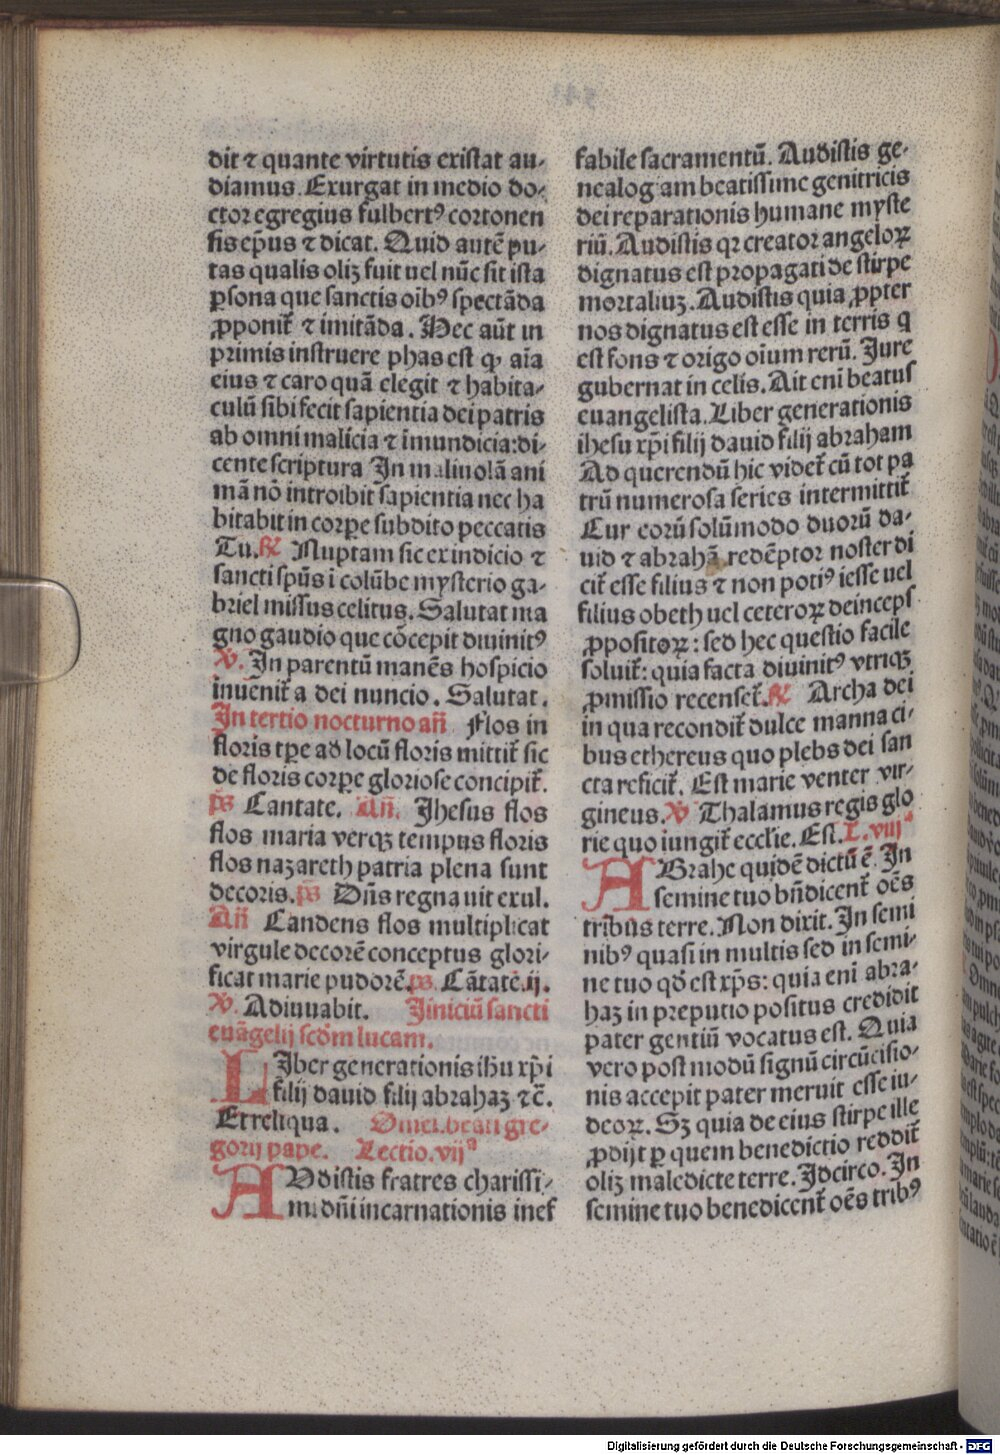 dit ⁊ quante virtutis existat au-
diamus. Exurgat in medio do-
ctor egregius fulbertꝰ cortonen
sis ep̄us ⁊ dicat. Quid autē pu-
tas qualis oliꝫ fuit uel nūc sit ista
ꝑsona que sanctis oībꝰ spectāda
ꝓponit̄ ⁊ imitāda. Hec aūt in
primis instruere phas est ꝙ aīa
eius ⁊ caro quā elegit ⁊ habita-
culū sibi fecit sapientia dei patris
ab omni malicia ⁊ īmundicia: di-
cente scriptura In maliuolā ani
mā nō introibit sapientia nec ha
bitabit in corꝑe subdito peccatis
Tu. ℟ Nuptam sic ex indicio ⁊
sancti sp̄us ī colūbe mysterio ga-
briel missus celitus. Salutat ma
gno gaudio que cōcepit diuinitꝰ
℣. In parentū manēs hospicio
inuenit̄ a dei nuncio. Salutat.
In tertio nocturno añ Flos in
floris tꝑe ad locū floris mittit̄ sic
de floris corꝑe gloriose concipit̄.
p̄s Cantate. Añ. Jhesus flos
flos maria verqꝫ tempus floris
flos nazareth patria plena sunt
decoris. p̄s Dn̄s regnauit exul.
Añ Candens flos multiplicat
virgule decorē conceptus glori-
ficat marie pudorē. ps. Cātatē.ij.
℣. Adiuuabit. Jiniciū sancti
euāgelij scd̄m lucam.
LIber generationis ihū xp̄i
filij dauid filij abrahaꝫ ⁊c̄.
Et reliqua. Omel. beati gre-
gorij pape. Lectio.vijª
AVdistis fratres charissi-
mi dn̄i incarnationis inef
fabile sacramentū. Audistis ge-
nealogiam beatissime genitricis
dei reparationis humane myste
riū. Audistis qꝛ creator angeloꝝ
dignatus est propagati de stirpe
mortaliuꝫ. Audistis quia ꝓpter
nos dignatus est esse in terris q
est fons ⁊ origo oīum rerū. Jure
gubernat in celis. Ait enī beatus
euangelista. Liber generationis
ihesu xp̄i filij dauid filij abraham
Ad querendū hic videt̄ cū tot pa
trū numerosa series intermittit̄
Cur eorū solūmodo duorū da-
uid ⁊ abrahā redēptor noster di
cit̄ esse filius ⁊ non potiꝰ iesse uel
filius obeth uel ceteroꝝ deinceps
ꝓpositoꝝ: sed hec questio facile
soluit̄: quia facta diuinitꝰ vtriqꝫ
ꝓmissio recenset̄. ℟ Archa dei
in qua recondit̄ dulce manna ci-
bus ethereus quo plebs dei san
cta reficit̄. Est marie venter vir-
gineus. ℣ Thalamus regis glo
rie quo iungit̄ ecclīe. Est. L. viijª
ABrahe quidē dictū ē. In
semine tuo bn̄dicent̄ oēs
tribus terre. Non dixit. In semi
nibꝰ quasi in multis sed in semi-
ne tuo qd̄ est xp̄s: quia enī abra-
haꝫ in preputio positus credidit
pater gentiū vocatus est. Quia
vero post modū signū circūcisio-
nis accepit pater meruit esse iu-
deoꝝ. Sꝫ quia de eius stirpe ille
ꝓdijt ꝑ quem benedictio reddit̄
oliꝫ maledicte terre. Jdcirco. In
semine tuo benedicent̄ oēs tribꝰ
Digitalisierung gefördert durch die Deutsche Forschungsgemeinschaft - DFG